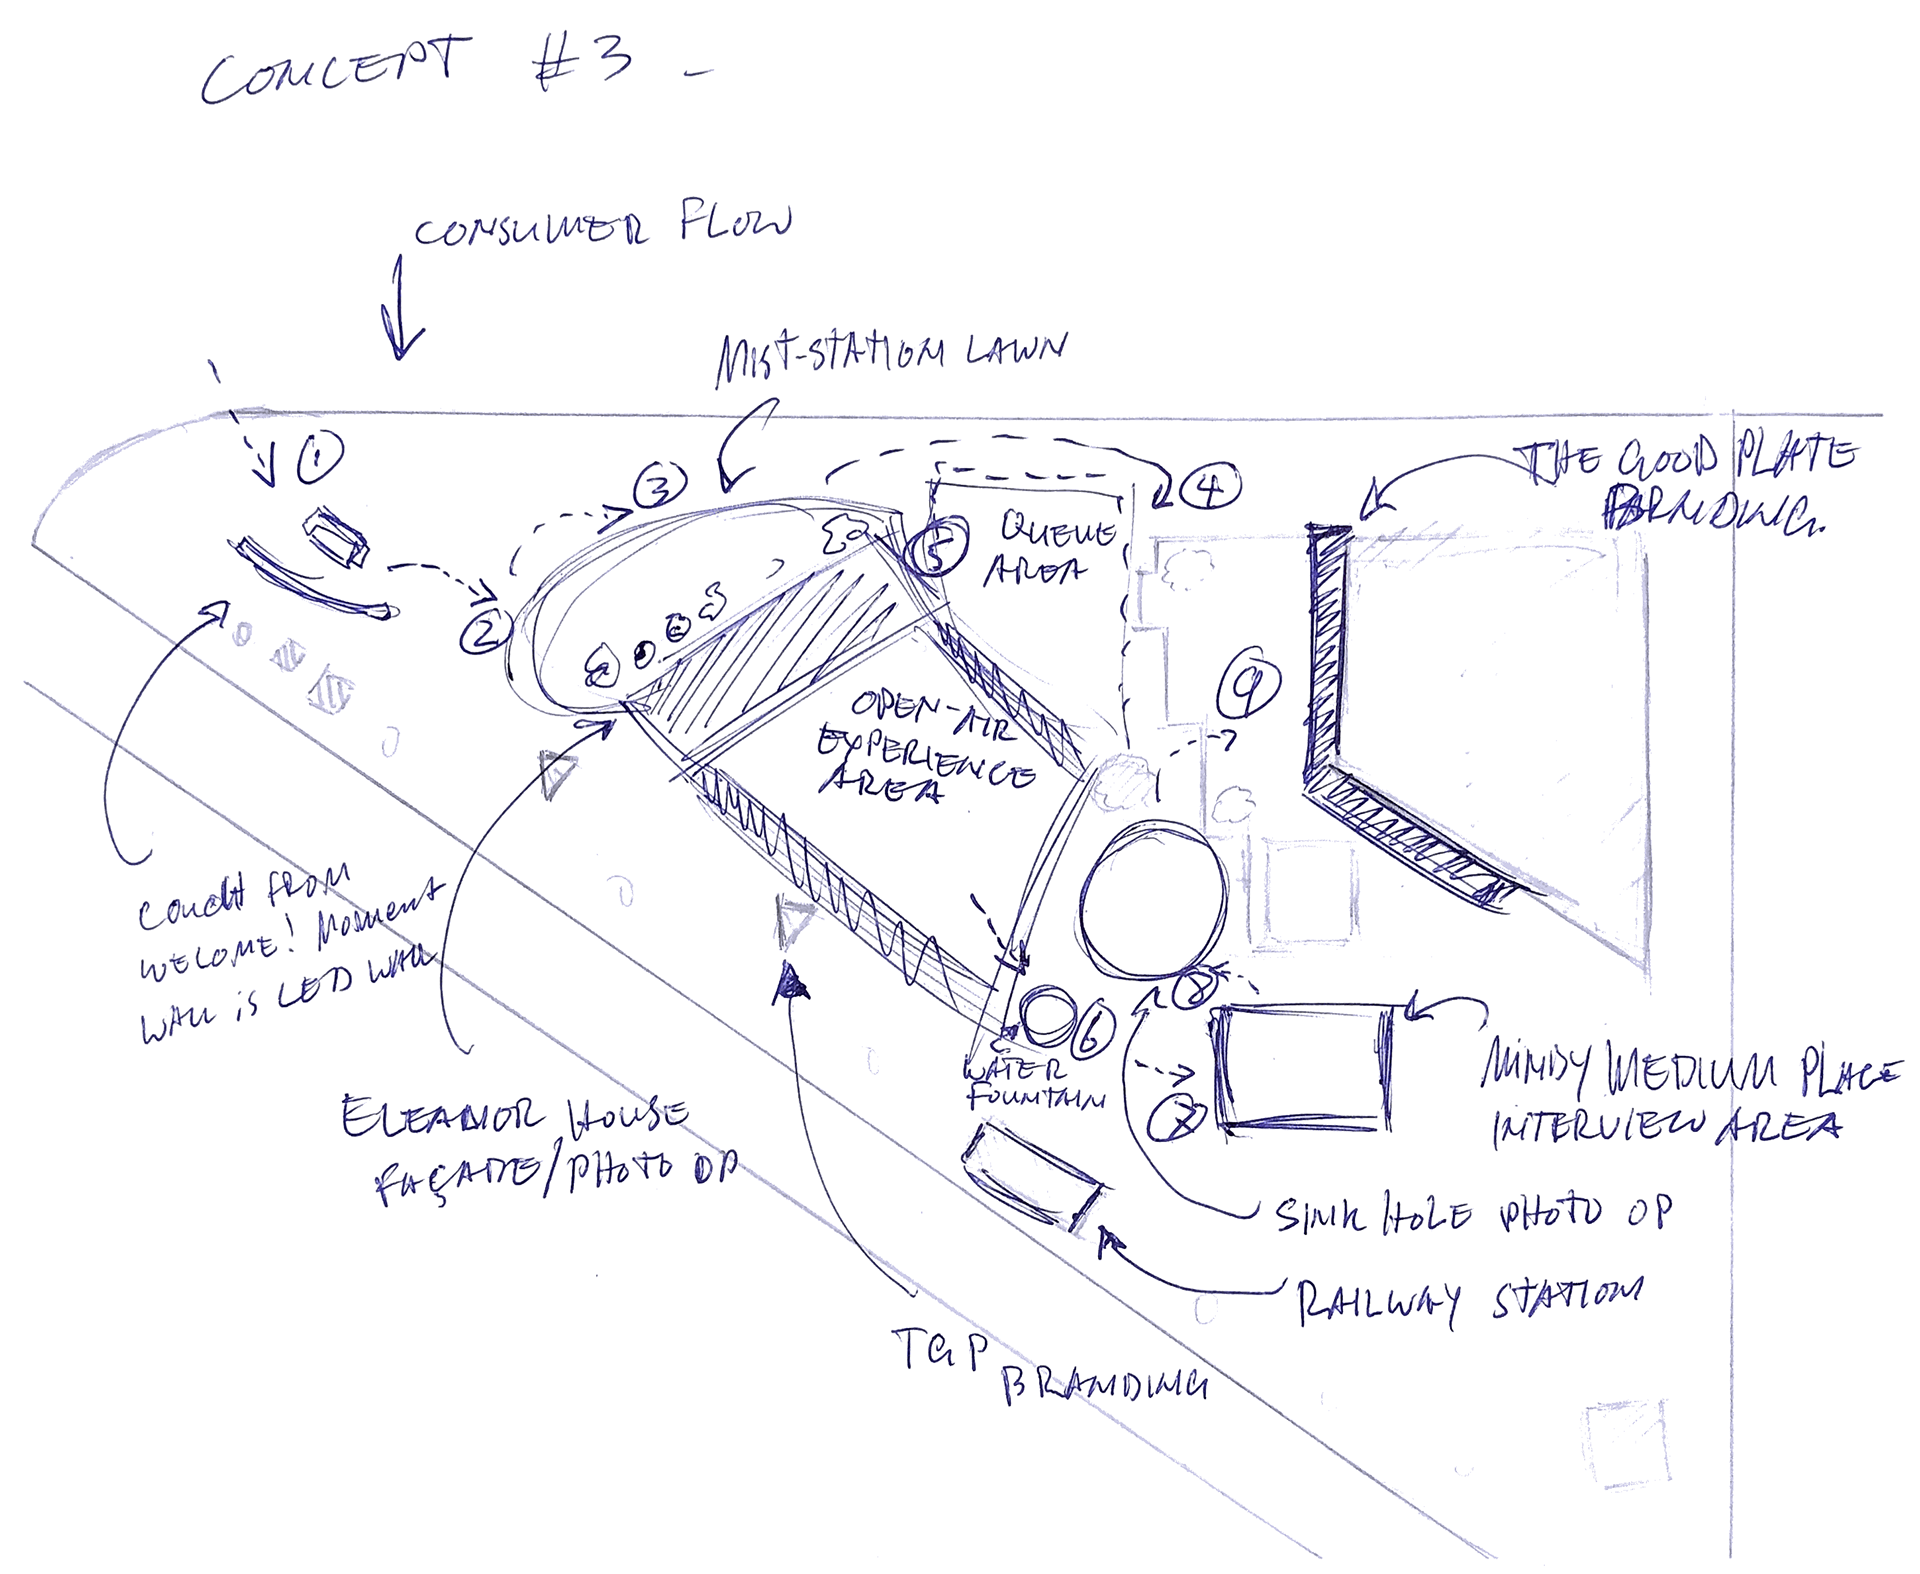 CONCEPT #3 -
CONSUMER FLOW
MIST-STATION LAWN
THE GOOD PLATE
BRNDING.
1
2
3
4
5
QUEUE
AREA
9
OPEN-AIR
EXPERIENCE
AREA
COUCH FROM
WELOME! MOMENT
WALL is LED WALL
ELEANOR HOUSE
FAÇADE/PHOTO OP
8
6
WATER
FOUNTAIN
7
MINDY MEDIUM PLACE
INTERVIEW AREA
SINK HOLE PHOTO OP
RAILWAY STATION
TGP
BRANDING